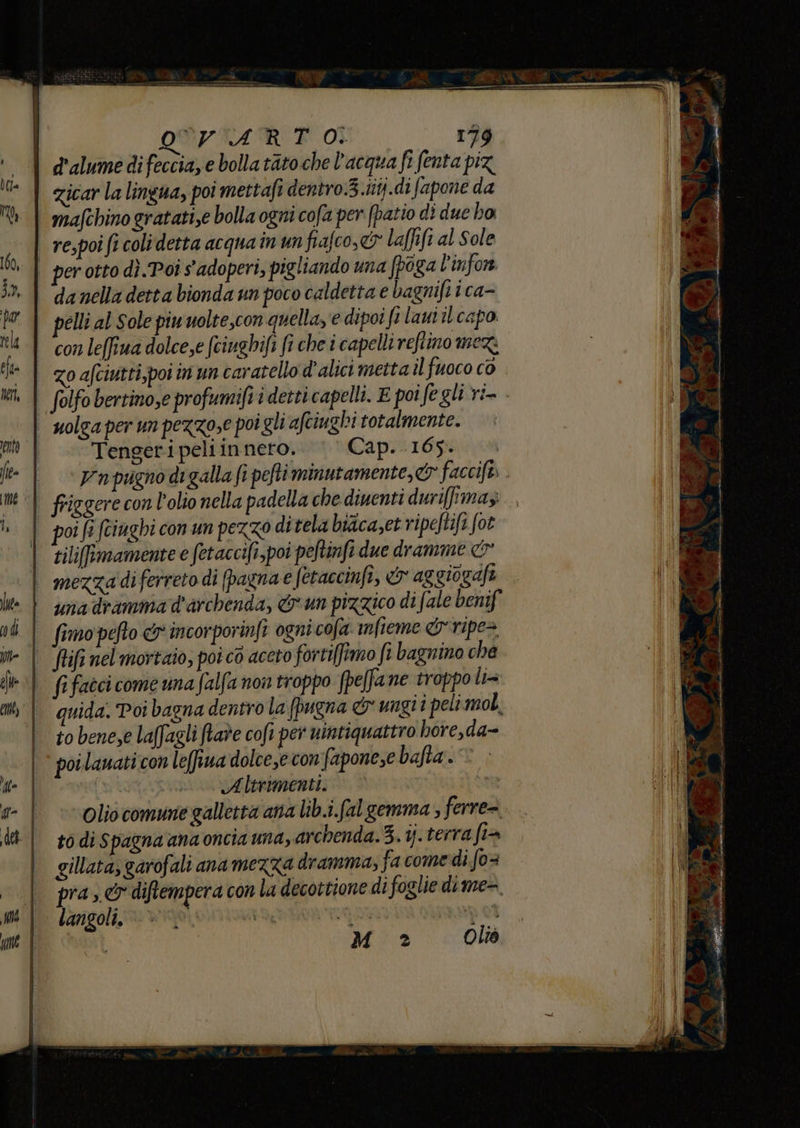 QVARTO. 179
d'alume di feccia, e bolla tãto che l'acqua ſi ſenta piz
zicar la lingua, poi mettaſi dentro.℥.iiij.di ſapone da
maſchino gratati,e bolla ogni coſa per ſpatio di due ho
re,poi ſi coli detta acqua in un fiaſco,& laſſiſi al Sole
per otto dì.Poi s'adoperi, pigliando una ſpõga l'infon
da nella detta bionda un poco caldetta e bagniſi i ca-
pelli al Sole piu uolte,con quella, e dipoi ſi laui il capo
con leſſiua dolce,e ſciughiſi ſi che i capelli reſtino mez
zo aſciutti,poi in un caratello d'alici metta il fuoco cõ
ſolfo bertino,e profumiſi i detti capelli. E poi ſe gli ri-
uolga per un pezzo,e poi gli aſciughi totalmente.
Tenger i peli in nero. Cap. 165.
Vn pugno di galla ſi peſti minutamente,& facciſi
friggere con l'olio nella padella che diuenti duriſſima,
poi ſi ſciughi con un pezzo di tela biãca,et ripeſtiſi ſot
tiliſſimamente e ſetacciſi,poi peſtinſi due dramme &
mezza di ferreto di ſpagna e ſetaccinſi, & aggiõgaſi
una dramma d'archenda, & un pizzico di ſale beniſ
ſimo peſto & incorporinſi ogni coſa inſieme & ripe-
ſtiſi nel mortaio, poi cõ aceto fortiſſimo ſi bagnino che
ſi facci come una ſalſa non troppo ſpeſſa ne troppo li-
quida. Poi bagna dentro la ſpugna & ungi i peli mol
to bene,e laſſagli ſtare coſi per uintiquattro hore,da-
poi lauati con leſſiua dolce,e con ſapone,e baſta.
Altrimenti.
Olio comune galletta ana lib.i.ſal gemma, ferre-
to di Spagna ana oncia una, archenda.℥. ij. terra ſi-
gillata, garofali ana mezza dramma, fa come di ſo-
pra, & diſtempera con la decottione di foglie di me-
langoli.
M 2 Olio